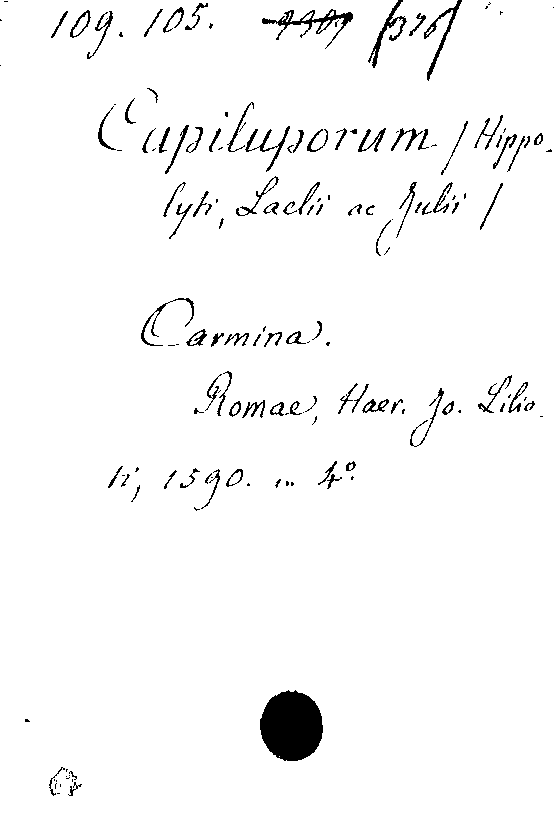 109. 105. /376/
Capiluporum / Hippo-
lyti, Laelii ac Julii /
Carmina.
Romae, Haer. Jo. Lilio-
ti, 1590. in 4º.